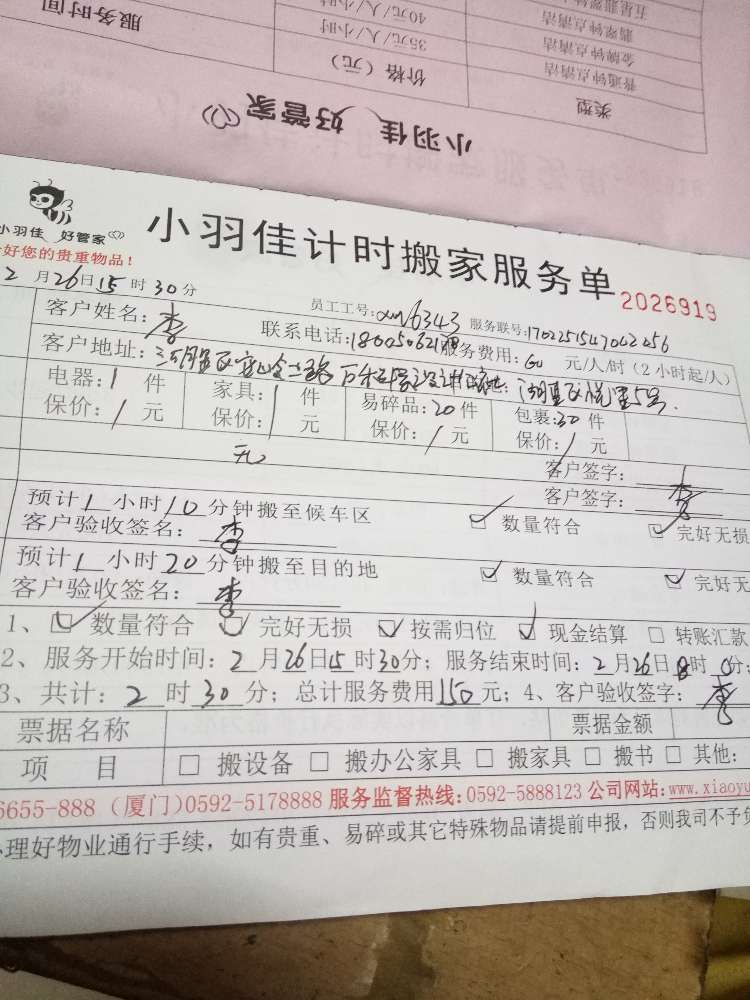 服务时间
40元/人/小时
五星翡翠钟
翡翠钟点清洁
35元/人/小时
金牌钟点清洁
价格（元）
普通钟点清洁
类型
小羽佳 好管家
小羽佳 好管家
好您的贵重物品！
小羽佳计时搬家服务单
2026919
2月26日15时30分
员工工号：xm6343 服务联号：1702251547042256
客户姓名：李
联系电话：
服务费用：60元/人/时（2小时起/人）
客户地址：
电器：1件 家具：1件 易碎品：20件 包裹：30件
保价：/元 保价：/元 保价：/元 保价：/元
无
客户签字：李
客户签字：
预计1小时10分钟搬至候车区 ☑ 数量符合 ☑ 完好无损
客户验收签名：李
预计1小时20分钟搬至目的地 ☑ 数量符合 ☑ 完好无
客户验收签名：李
1、☑ 数量符合 ☑ 完好无损 ☑ 按需归位 ☑ 现金结算 □ 转账汇款
2、服务开始时间：2月26日15时30分；服务结束时间：2月26日18时0分；
3、共计：2时30分；总计服务费用150元；4、客户验收签字：李
票据名称 票据金额
项目 □ 搬设备 □ 搬办公家具 □ 搬家具 □ 搬书 □ 其他：
6655-888（厦门）0592-5178888 服务监督热线：0592-5888123 公司网站：www.xiaoyu
理好物业通行手续，如有贵重、易碎或其它特殊物品请提前申报，否则我司不予负